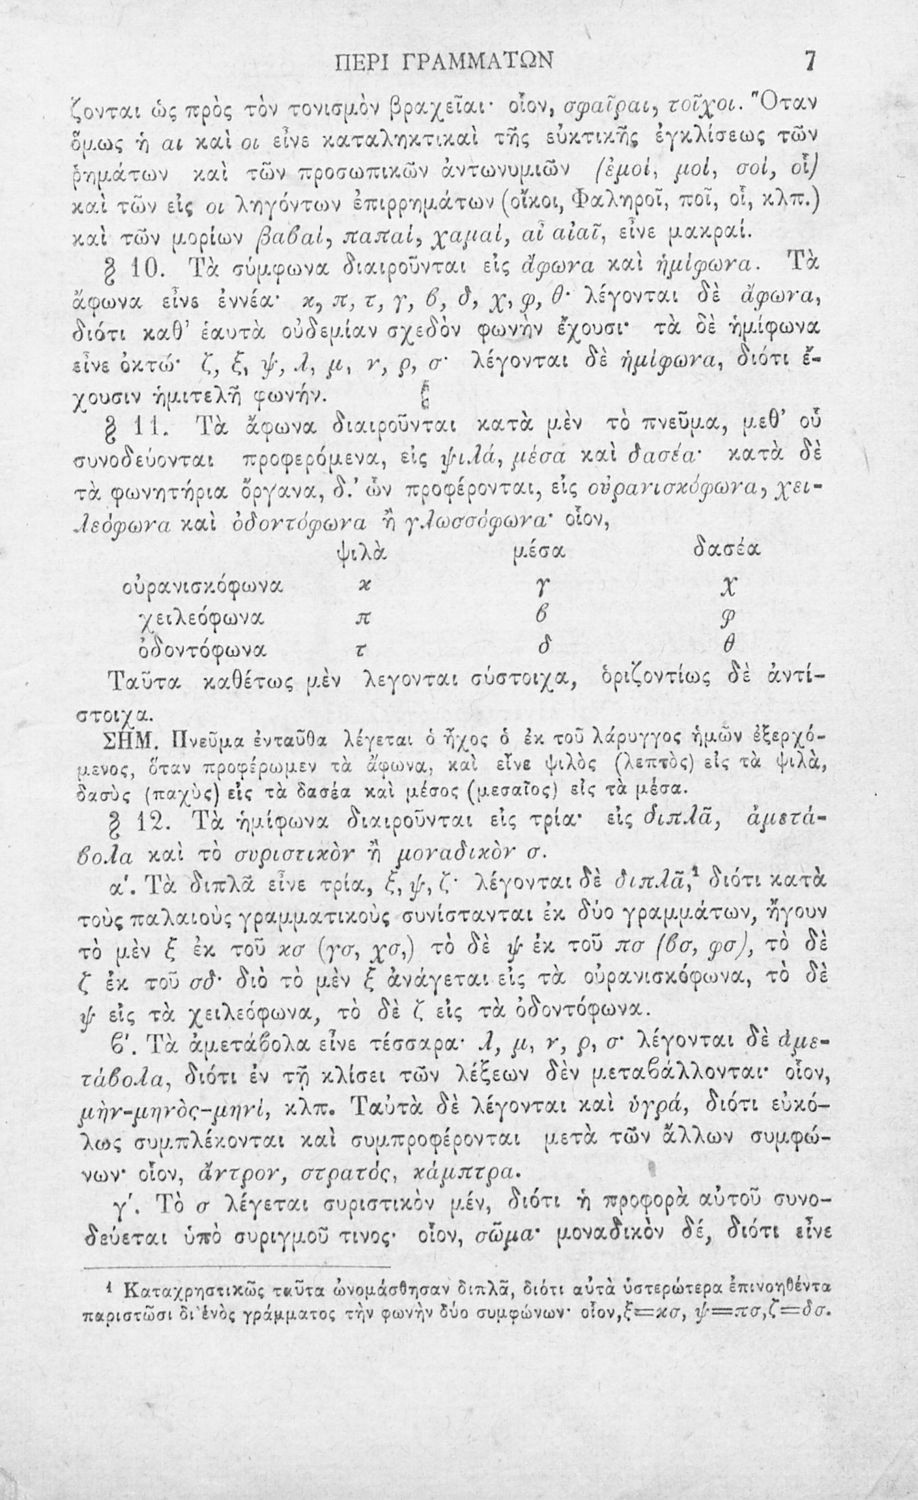 ΠΕΡΙ ΓΡΑΜΜΑΤΩΝ 7
ζονται ὡς πρὸς τὸν τονισμὸν βραχεῖαι· οἷον, σφαῖραι, τοῖχοι. Ὅταν
ὅμως ἡ αι καὶ οι εἶνε καταληκτικαὶ τῆς εὐκτικῆς ἐγκλίσεως τῶν
ῥημάτων καὶ τῶν προσωπικῶν ἀντωνυμιῶν (ἐμοί, μοί, σοί, οἷ)
καὶ τῶν εἰς οι ληγόντων ἐπιρρημάτων (οἴκοι, Φαληροῖ, ποῖ, οἷ, κλπ.)
καὶ τῶν μορίων βαβαί, παπαί, χαμαί, αἲ αἰαῖ, εἶνε μακραί.
§ 10. Τὰ σύμφωνα διαιροῦνται εἰς ἄφωνα καὶ ἡμίφωνα. Τὰ
ἄφωνα εἶνε ἐννέα· κ, π, τ, γ, β, δ, χ, φ, θ· λέγονται δὲ ἄφωνα,
διότι καθ' ἑαυτὰ οὐδεμίαν σχεδὸν φωνὴν ἔχουσι· τὰ δὲ ἡμίφωνα
εἶνε ὀκτώ· ζ, ξ, ψ, λ, μ, ν, ρ, σ· λέγονται δὲ ἡμίφωνα, διότι ἔ-
χουσιν ἡμιτελῆ φωνήν.
§ 11. Τὰ ἄφωνα διαιροῦνται κατὰ μὲν τὸ πνεῦμα, μεθ' οὗ
συνοδεύονται προφερόμενα, εἰς ψιλά, μέσα καὶ δασέα· κατὰ δὲ
τὰ φωνητήρια ὄργανα, δ.' ὧν προφέρονται, εἰς οὐρανισκόφωνα, χει-
λεόφωνα καὶ ὀδοντόφωνα ἢ γλωσσόφωνα· οἷον,
ψιλὰ μέσα δασέα
οὐρανισκόφωνα κ γ χ
χειλεόφωνα π β φ
ὀδοντόφωνα τ δ θ
Ταῦτα καθέτως μὲν λεγονται σύστοιχα, ὁριζοντίως δὲ ἀντί-
στοιχα.
ΣΗΜ. Πνεῦμα ἐνταῦθα λέγεται ὁ ἦχος ὁ ἐκ τοῦ λάρυγγος ἡμῶν ἐξερχό-
μενος, ὅταν προφέρωμεν τὰ ἄφωνα, καὶ εἶνε ψιλὸς (λεπτὸς) εἰς τὰ ψιλὰ,
δασὺς (παχὺς) εἰς τὰ δασέα καὶ μέσος (μεσαῖος) εἰς τὰ μέσα.
§ 12. Τὰ ἡμίφωνα διαιροῦνται εἰς τρία· εἰς διπλᾶ, ἀμετά-
βολα καὶ τὸ συριστικὸν ἢ μοναδικὸν σ.
α'. Τὰ διπλᾶ εἶνε τρία, ξ, ψ, ζ· λέγονται δὲ διπλᾶ,¹ διότι κατὰ
τοὺς παλαιοὺς γραμματικοὺς συνίστανται ἐκ δύο γραμμάτων, ἤγουν
τὸ μὲν ξ ἐκ τοῦ κσ (γσ, χσ,) τὸ δὲ ψ ἐκ τοῦ πσ (βσ, φσ), τὸ δὲ
ζ ἐκ τοῦ σδ· διὸ τὸ μὲν ξ ἀνάγεται εἰς τὰ οὐρανισκόφωνα, τὸ δὲ
ψ εἰς τὰ χειλεόφωνα, τὸ δὲ ζ εἰς τὰ ὀδοντόφωνα.
β'. Τὰ ἀμετάβολα εἶνε τέσσαρα· λ, μ, ν, ρ, σ· λέγονται δὲ ἀμε-
τάβολα, διότι ἐν τῇ κλίσει τῶν λέξεων δὲν μεταβάλλονται· οἷον,
μὴν-μηνὸς-μηνί, κλπ. Ταῦτὰ δὲ λέγονται καὶ ὑγρά, διότι εὐκό-
λως συμπλέκονται καὶ συμπροφέρονται μετὰ τῶν ἄλλων συμφώ-
νων· οἷον, ἄντρον, στρατός, κάμπτρα.
γ'. Τὸ σ λέγεται συριστικὸν μέν, διότι ἡ προφορὰ αὐτοῦ συνο-
δεύεται ὑπὸ συριγμοῦ τινος· οἷον, σῶμα· μοναδικὸν δέ, διότι εἶνε
¹ Καταχρηστικῶς ταῦτα ὠνομάσθησαν διπλᾶ, διότι αὐτὰ ὑστερώτερα ἐπινοηθέντα
παριστῶσι δι' ἑνὸς γράμματος τὴν φωνὴν δύο συμφώνων· οἷον, ξ=κσ, ψ=πσ, ζ=δσ.